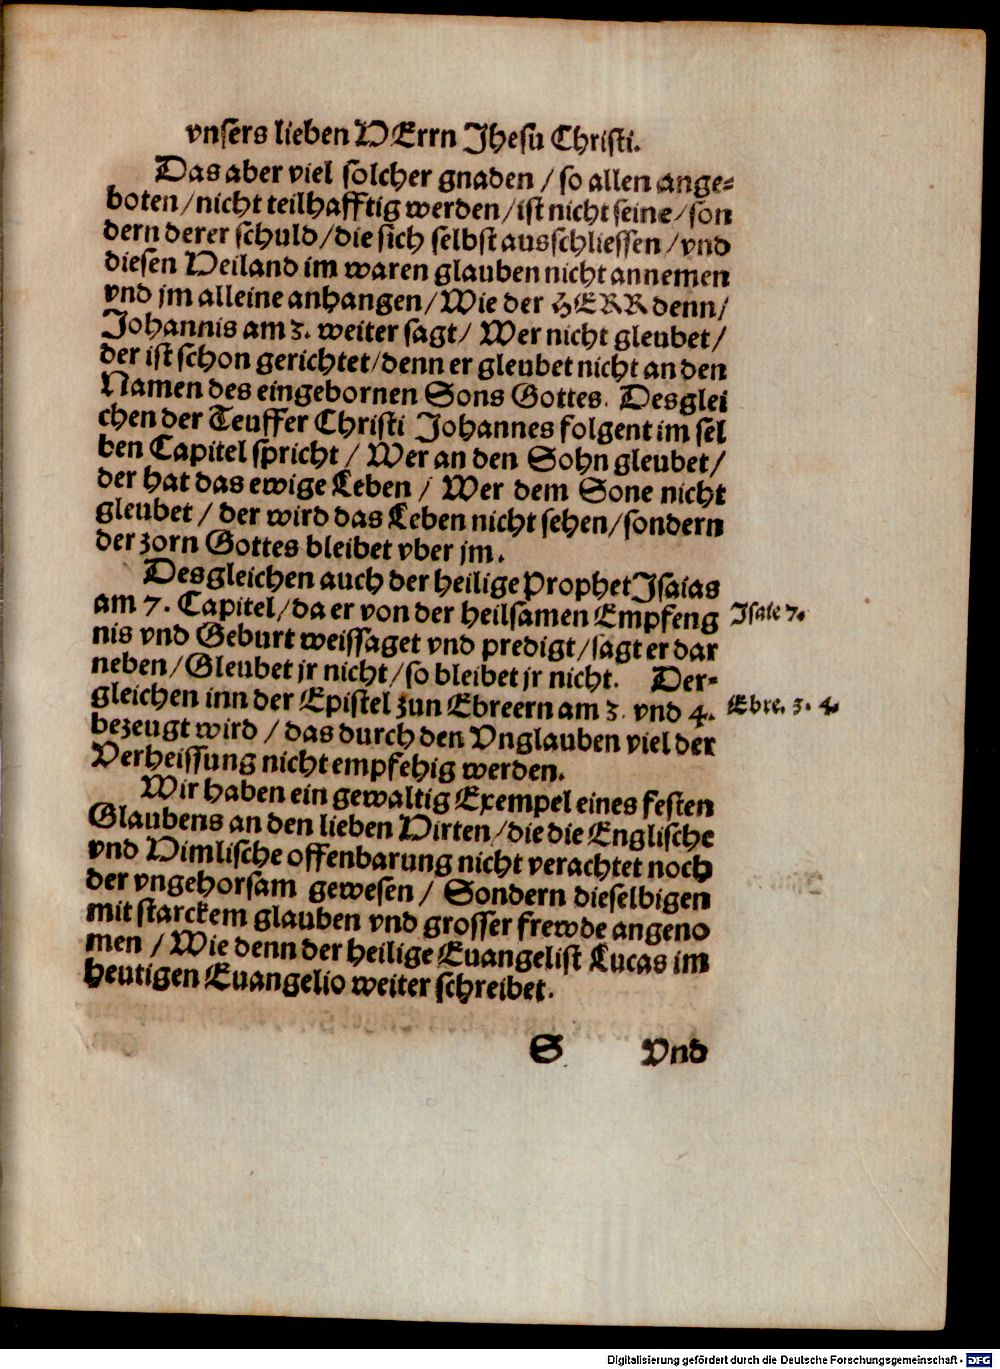 vnsers lieben HErrn Jhesu Christi.
Das aber viel solcher gnaden / so allen ange-
boten / nicht teilhafftig werden / ist nicht seine / son
dern derer schuld / die sich selbst ausschliessen / vnd
diesen Heiland im waren glauben nicht annemen
vnd jm alleine anhangen / Wie der HERR denn /
Johannis am 3. weiter sagt / Wer nicht gleubet /
der ist schon gerichtet / denn er gleubet nicht an den
Namen des eingebornen Sons Gottes. Desglei
chen der Teuffer Christi Johannes folgent im sel
ben Capitel spricht / Wer an den Sohn gleubet /
der hat das ewige Leben / Wer dem Sone nicht
gleubet / der wird das Leben nicht sehen / sondern
der zorn Gottes bleibet vber jm.
Desgleichen auch der heilige Prophet Jsaias
am 7. Capitel / da er von der heilsamen Empfeng
Jsaie 7.
nis vnd Geburt weissaget vnd predigt / sagt er dar
neben / Gleubet jr nicht / so bleibet jr nicht. Der-
gleichen inn der Epistel zun Ebreern am 3. vnd 4.
Ebre. 3. 4.
bezeugt wird / das durch den Vnglauben viel der
Verheissung nicht empfehig werden.
Wir haben ein gewaltig Exempel eines festen
Glaubens an den lieben Hirten / die die Englische
vnd Himlische offenbarung nicht verachtet noch
der vngehorsam gewesen / Sondern dieselbigen
mit starckem glauben vnd grosser frewde angeno
men / Wie denn der heilige Euangelist Lucas im
heutigen Euangelio weiter schreibet.
S Vnd
Digitalisierung gefördert durch die Deutsche Forschungsgemeinschaft - DFG